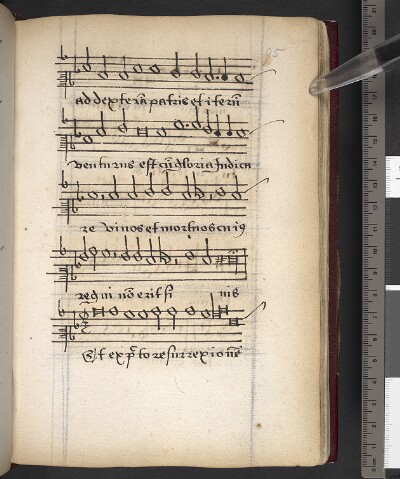 95
ad dexterā patris et iterū
venturus est cū gloria Judica
re vivos et mortuos cuiꝰ
regni nō erit fi nis
Et exp̄to resurrexionē